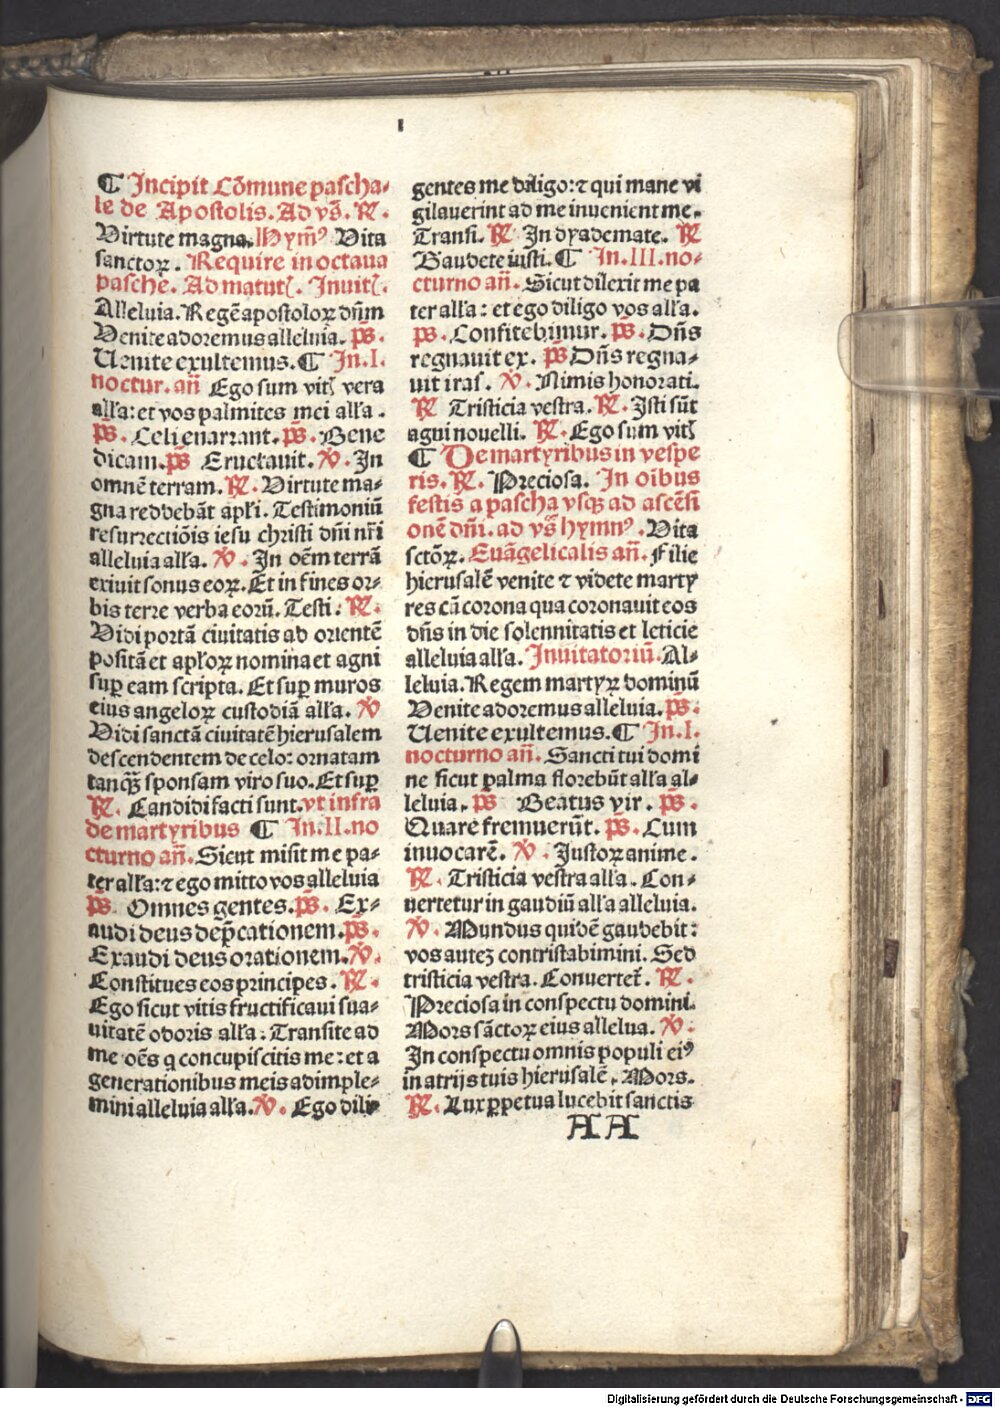 ı
¶ Incipit Cõmune pascha⸗
le de Apostolis. Ad vs̃. ℟.
Virtute magna. Hym̃⁹ Vita
sanctoꝝ. Require in octaua
pasche. Ad matutꝭ. Inuitꝭ.
Alleluia. Regẽ apostoloꝝ dñm
Venite adoremus alleluia. ps̃.
Uenite exultemus. ¶ In. I.
noctur. añ Ego sum vitꝭ vera
allʼa: et vos palmites mei allʼa.
ps̃. Celi enarrant. ps̃. Bene
dicam. ps̃ Eructauit. ℣. In
omnẽ terram. ℟. Virtute ma⸗
gna reddebãt aplʼi. Testimoniũ
resurrectiõis iesu christi dñi nr̃i
alleluia allʼa. ℣. In oẽm terrã
exiuit sonus eoꝝ. Et in fines or⸗
bis terre verba eorũ. Testi. ℟.
Vidi portã ciuitatis ad orientẽ
positã et aplʼoꝝ nomina et agni
suꝑ eam scripta. Et suꝑ muros
eius angeloꝝ custodiã allʼa. ℣
Vidi sanctã ciuitatẽ hierusalem
descendentem de celo: ornatam
tanꝗ̃ sponsam viro suo. Et suꝑ
℟. Candidi facti sunt. vt infra
de martyribus ¶ In. II. no
cturno añ. Sicut misit me pa⸗
ter allʼa: ⁊ ego mitto vos alleluia
ps̃. Omnes gentes. ps̃. Ex⸗
audi deus dep̃cationem. ps̃.
Exaudi deus orationem. ℣.
Constitues eos principes. ℟.
Ego sicut vitis fructificaui sua⸗
uitatẽ odoris allʼa: Transite ad
me oẽs q concupiscitis me: et a
generationibus meis adimple⸗
mini alleluia allʼa. ℣. Ego dili⸗
gentes me diligo: ⁊ qui mane vi
gilauerint ad me inuenient me.
Transi. ℟ In dyademate. ℟
Gaudete iusti. ¶ In. III. no⸗
cturno añ. Sicut dilexit me pa
ter allʼa: et ego diligo vos allʼa.
ps̃. Confitebimur. ps̃. Dñs
regnauit ex. ps̃ Dñs regna⸗
uit iras. ℣. Nimis honorati.
℟ Tristicia vestra. ℟. Isti sũt
agni nouelli. ℟. Ego sum vitꝭ
¶ De martyribus in vespe
ris. ℟. Preciosa. In oĩbus
festis a pascha vsqꝫ ad ascẽsi
onẽ dñi. ad vs̃ hymn⁹. Vita
sctõꝝ. Euãgelicalis añ. Filie
hierusalẽ venite ⁊ videte marty
res cũ corona qua coronauit eos
dñs in die solennitatis et leticie
alleluia allʼa. Inuitatoriũ. Al⸗
leluia. Regem martyꝝ dominũ
Venite adoremus alleluia. ps̃.
Uenite exultemus. ¶ In. I.
nocturno añ. Sancti tui domi
ne sicut palma florebũt allʼa al⸗
leluia. ps̃ Beatus vir. ps̃.
Quare fremuerũt. ps̃. Cum
inuocarẽ. ℣. Iustoꝝ anime.
℟. Tristicia vestra allʼa. Con⸗
uertetur in gaudiũ allʼa alleluia.
℣. Mundus quidẽ gaudebit:
vos autez contristabimini. Sed
tristicia vestra. Conuertet̃. ℟.
Preciosa in conspectu domini.
Mors sãctoꝝ eius allelua. ℣.
In conspectu omnis populi ei⁹
in atrijs tuis hierusalẽ. Mors.
℟. Lux ꝑpetua lucebit sanctis
AA
Digitalisierung gefördert durch die Deutsche Forschungsgemeinschaft - DFG